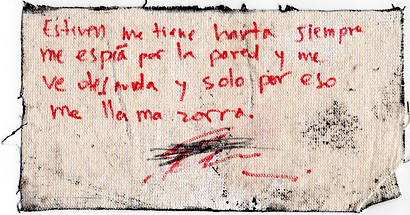 Estiven me tiene harta siempre
me espía por la pared y me
ve desnuda y solo por eso
me llama zorra.